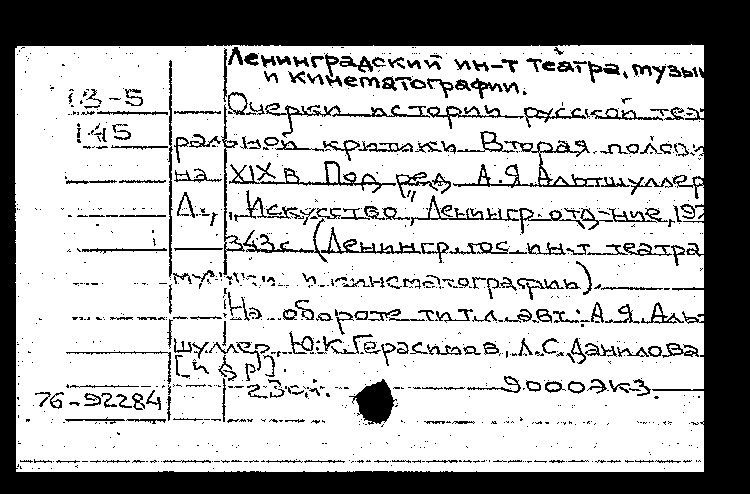 Ленинградский ин-т театра, музы
и кинематографии.
13-5 Очерки истории русской теат
145 ральной критики Вторая полови
на XIX в Под ред. А.Я Альтшуллер
Л., "Искусство", Ленингр. отд-ние, 197
343 с. (Ленингр. гос. ин-т театра
музыки и кинематографии).
На обороте тит. л. авт.: А.Я. Аль
шуллер, Ю.К. Герасимов, Л.С. Данилова
[и др].
23 см. 9000 экз.
76-92284